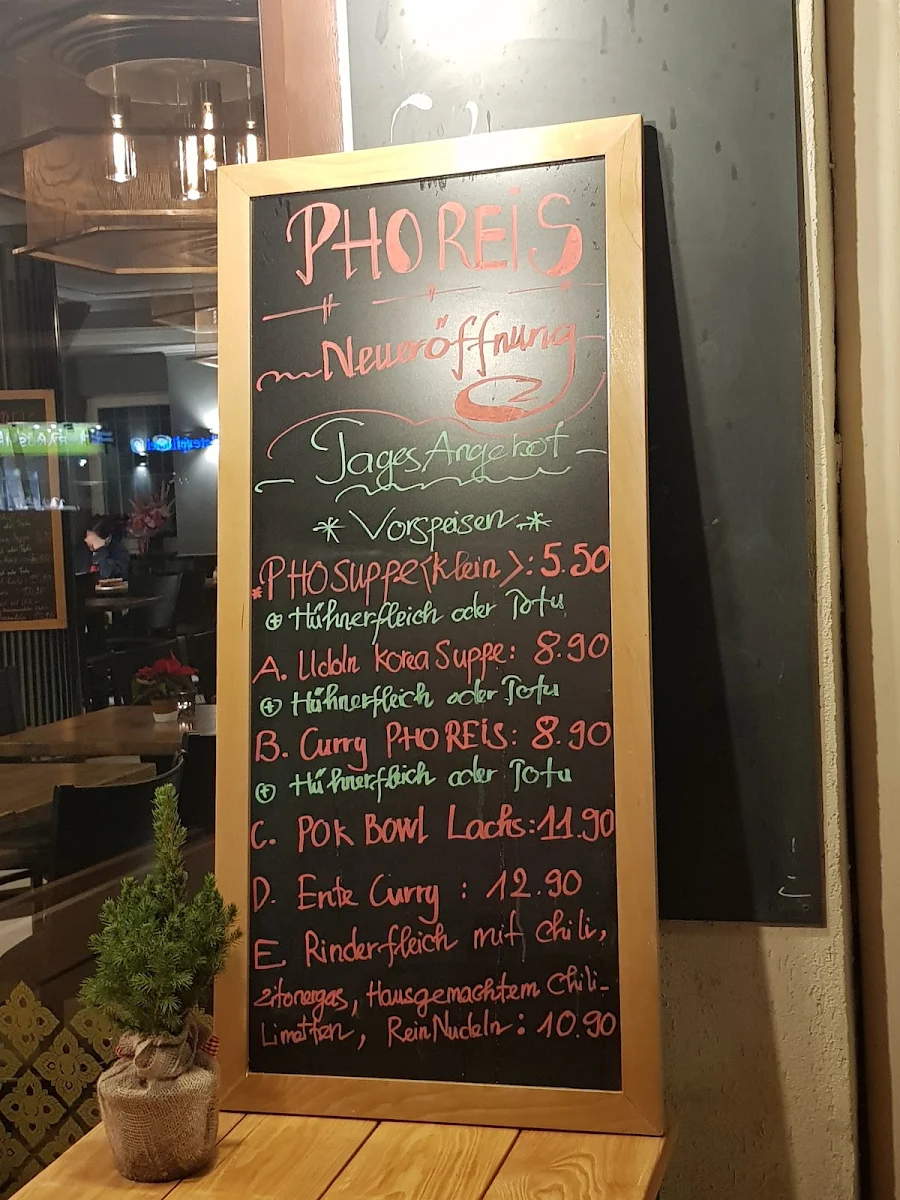 PHOREiS
Neueröffnung
Tages Angebot
* Vorspeisen *
*PHO suppe (klein): 5.50
⊕ Hühnerfleich oder Tofu
A. Udoln Korea Suppe: 8.90
⊕ Hühnerfleich oder Tofu
B. Curry PHO REiS: 8.90
⊕ Hühnerfleich oder Tofu
C. POK BOWL Lachs: 11.90
D. Ente Curry : 12.90
E Rinderfleich mit Chili,
zitonergas, Hausgemachtem Chili-
Limetten, Rein Nudeln: 10.90